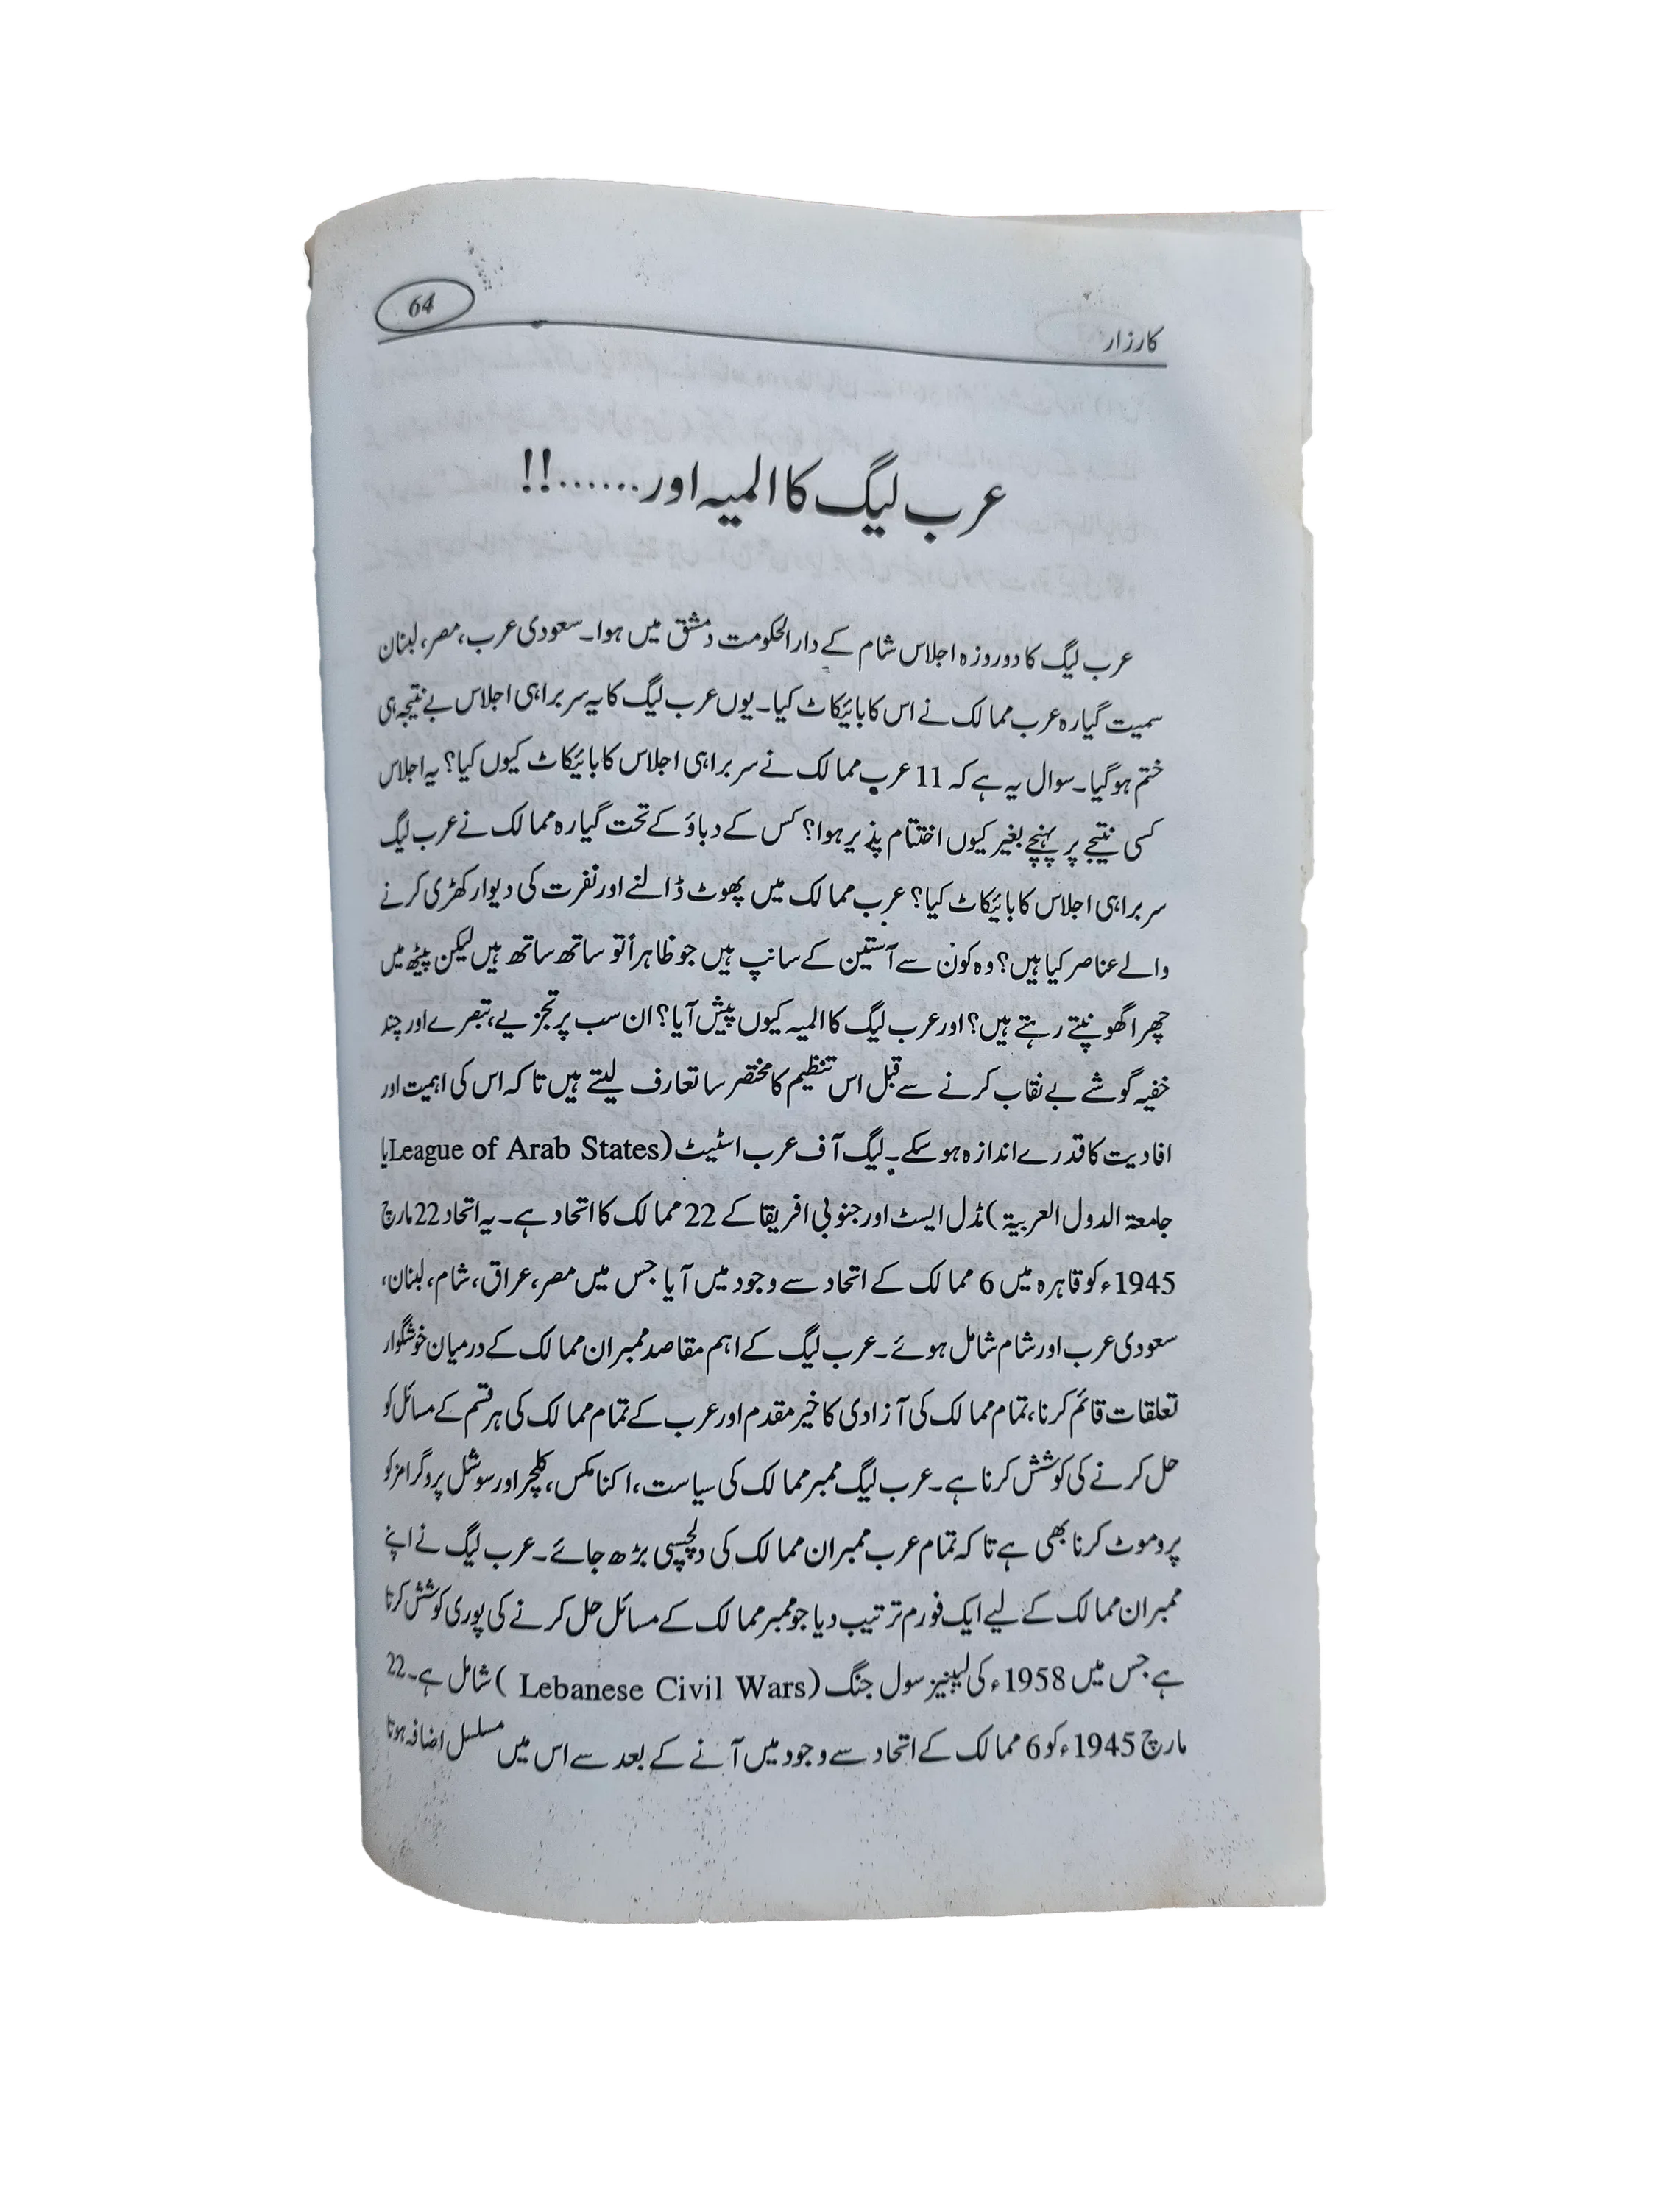 کارزار
64
عرب لیگ کا المیہ اور......!!
عرب لیگ کا دو روزہ اجلاس شام کے دارالحکومت دمشق میں ہوا۔ سعودی عرب، مصر، لبنان
سمیت گیارہ عرب ممالک نے اس کا بائیکاٹ کیا۔ یوں عرب لیگ کا یہ سربراہی اجلاس بے نتیجہ ہی
ختم ہو گیا۔ سوال یہ ہے کہ 11 عرب ممالک نے سربراہی اجلاس کا بائیکاٹ کیوں کیا؟ یہ اجلاس
کسی نتیجے پر پہنچے بغیر کیوں اختتام پذیر ہوا؟ کس کے دباؤ کے تحت گیارہ ممالک نے عرب لیگ
سربراہی اجلاس کا بائیکاٹ کیا؟ عرب ممالک میں پھوٹ ڈالنے اور نفرت کی دیوار کھڑی کرنے
والے عناصر کیا ہیں؟ وہ کون سے آستین کے سانپ ہیں جو ظاہراً تو ساتھ ساتھ ہیں لیکن پیٹھ میں
چھرا گھونپتے رہتے ہیں؟ اور عرب لیگ کا المیہ کیوں پیش آیا؟ ان سب پر تجزیے، تبصرے اور چند
خفیہ گوشے بے نقاب کرنے سے قبل اس تنظیم کا مختصر سا تعارف لیتے ہیں تاکہ اس کی اہمیت اور
افادیت کا قدرے اندازہ ہو سکے۔ لیگ آف عرب اسٹیٹ (League of Arab States یا
جامعۃ الدول العربیۃ) مڈل ایسٹ اور جنوبی افریقا کے 22 ممالک کا اتحاد ہے۔ یہ اتحاد 22 مارچ
1945ء کو قاہرہ میں 6 ممالک کے اتحاد سے وجود میں آیا جس میں مصر، عراق، شام، لبنان،
سعودی عرب اور شام شامل ہوئے۔ عرب لیگ کے اہم مقاصد ممبران ممالک کے درمیان خوشگوار
تعلقات قائم کرنا، تمام ممالک کی آزادی کا خیر مقدم اور عرب کے تمام ممالک کی ہر قسم کے مسائل کو
حل کرنے کی کوشش کرنا ہے۔ عرب لیگ ممبر ممالک کی سیاست، اکنامکس، کلچر اور سوشل پروگرامز کو
پروموٹ کرنا بھی ہے تاکہ تمام عرب ممبران ممالک کی دلچسپی بڑھ جائے۔ عرب لیگ نے اپنے
ممبران ممالک کے لیے ایک فورم ترتیب دیا جو ممبر ممالک کے مسائل حل کرنے کی پوری کوشش کرتا
ہے جس میں 1958ء کی لیبنیز سول جنگ (Lebanese Civil Wars) شامل ہے۔ 22
مارچ 1945ء کو 6 ممالک کے اتحاد سے وجود میں آنے کے بعد سے اس میں مسلسل اضافہ ہوتا